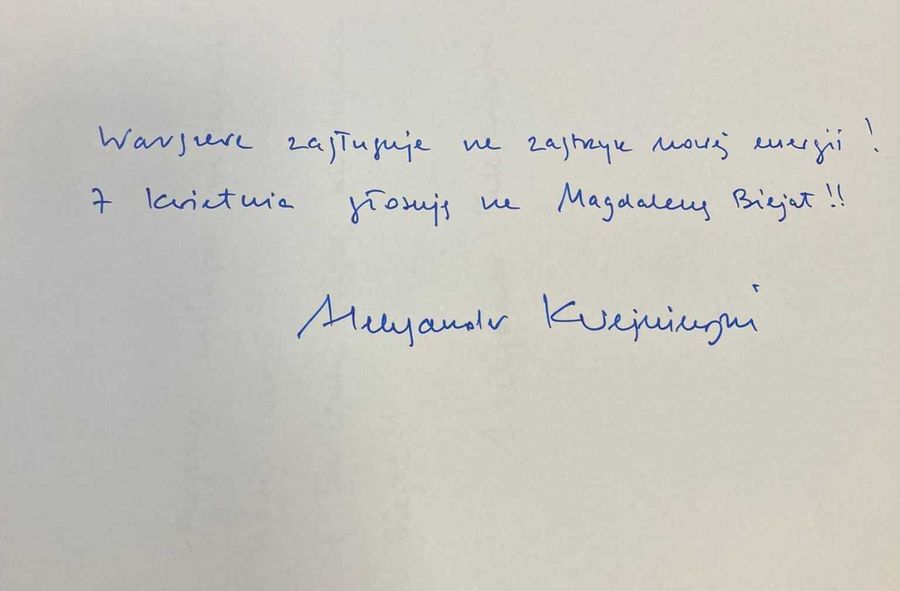 Warszawa zasługuje na zastrzyk nowej energii!
7 kwietnia głosuję na Magdalenę Biejat!!
Aleksander Kwaśniewski